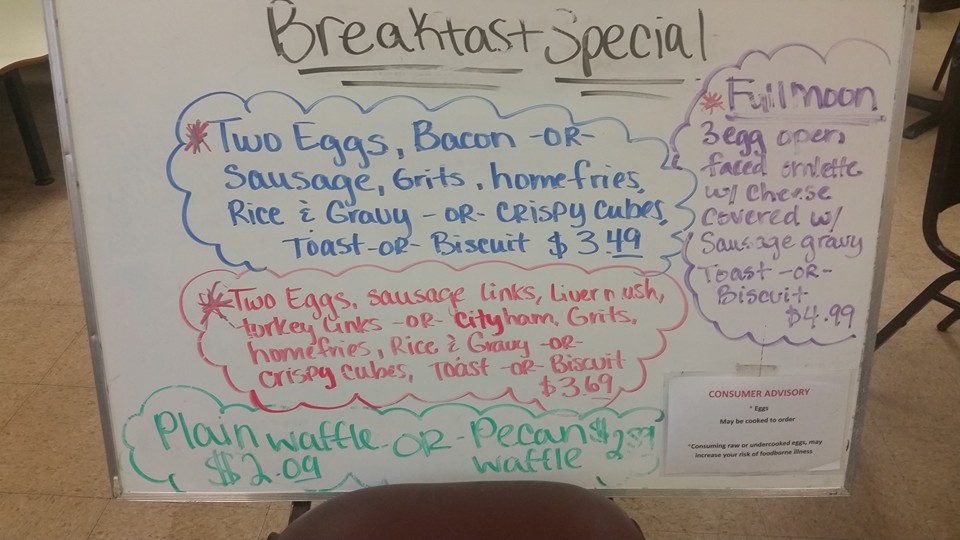 Breakfast Special
*Two Eggs, Bacon -OR-
Sausage, Grits, homefries,
Rice & Gravy -OR- CRISPY Cubes,
Toast -OR- Biscuit $3.49
*Two Eggs, sausage links, Livermush,
turkey links -OR- City ham, Grits,
homefries, Rice & Gravy -OR-
Crispy Cubes, Toast -OR- Biscuit
$3.69
Plain waffle -OR- Pecan
$2.09 waffle
*Full moon
3 egg open
faced omlette
w/ Cheese
Covered w/
Sausage gravy
Toast -OR-
Biscuit
$4.99
CONSUMER ADVISORY
* Eggs
May be cooked to order
*Consuming raw or undercooked eggs, may
increase your risk of foodborne illness